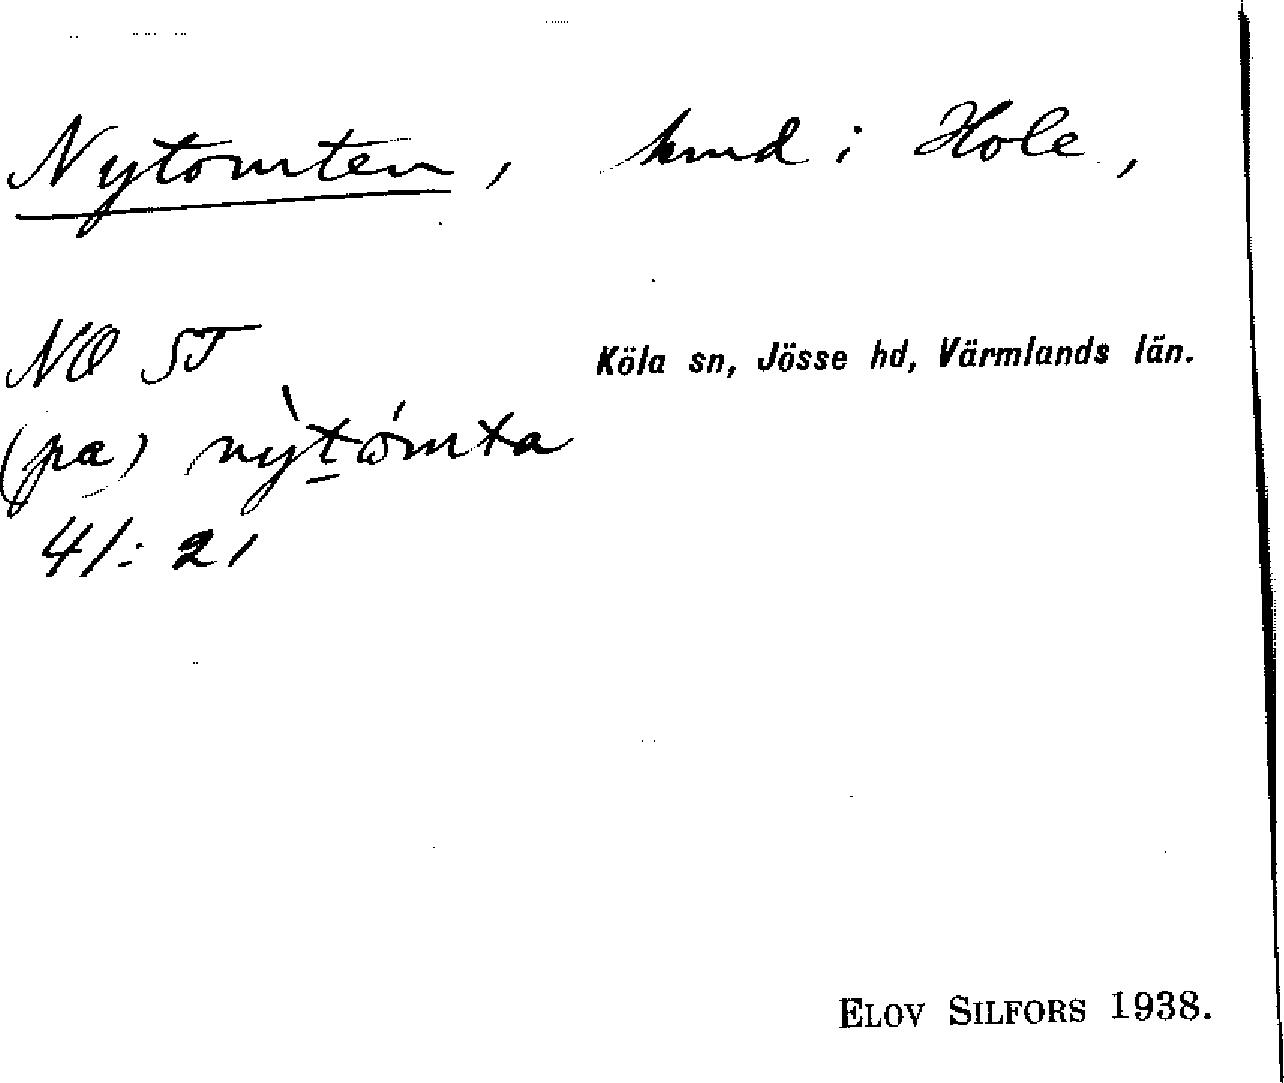 Nytomten, hmd i Hole,
NO ST
Köla sn, Jösse hd, Värmlands län.
(pa) nỳtómta
41:21
ELOV SILFORS 1938.